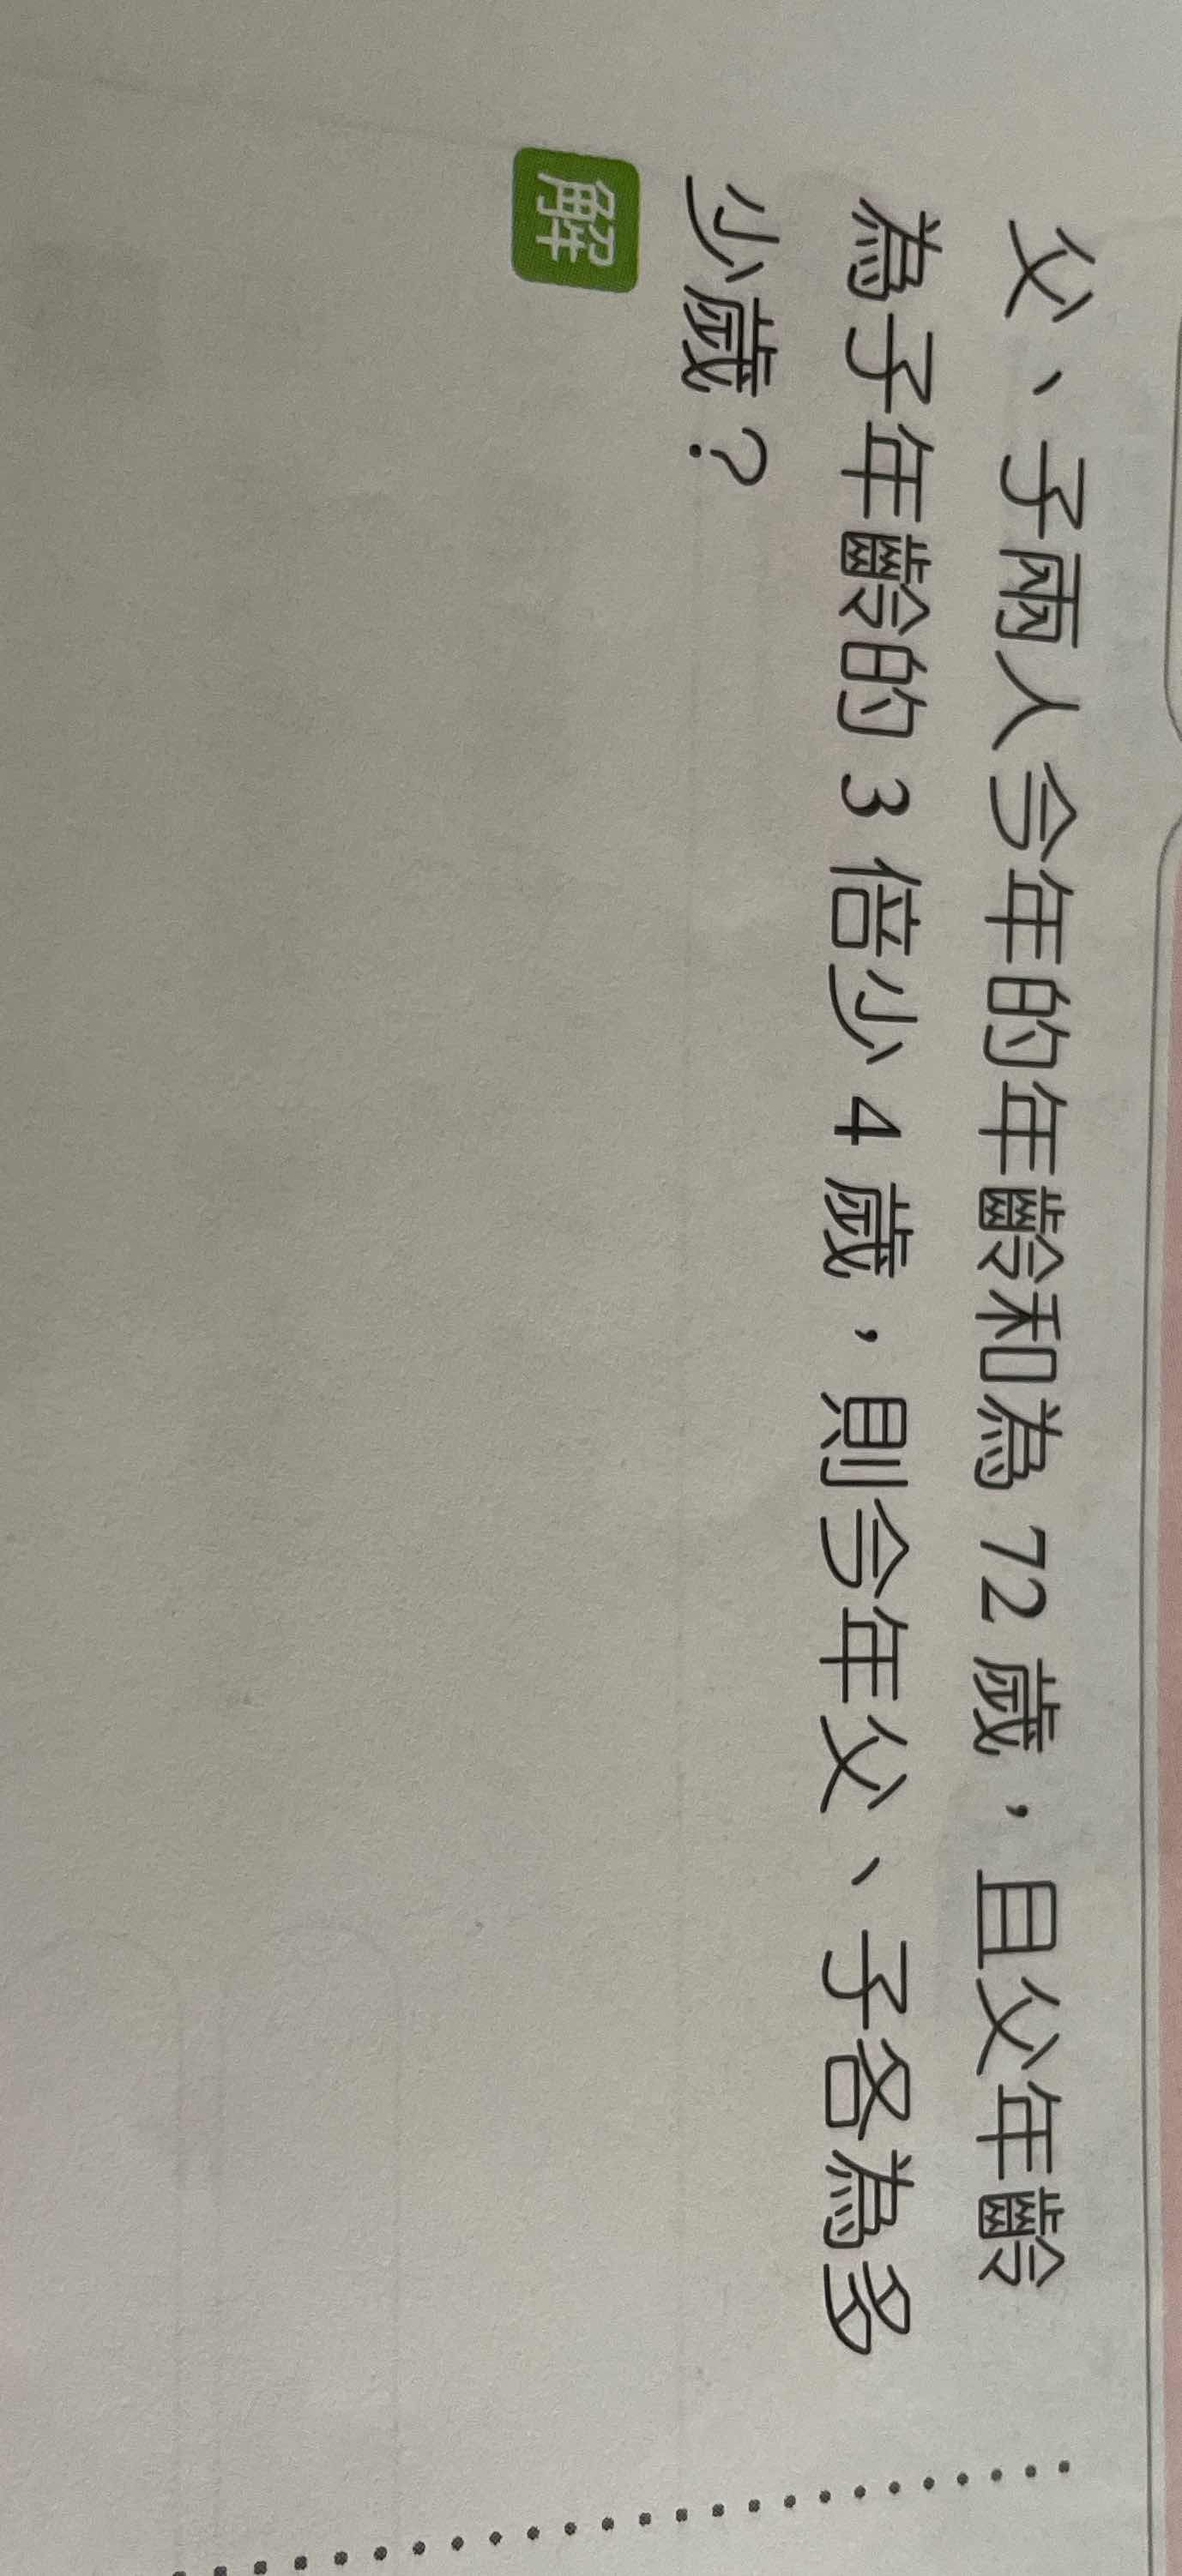 父、子兩人今年的年齡和為 72 歲，且父年齡
為子年齡的 3 倍少 4 歲，則今年父、子各為多
少歲？
解